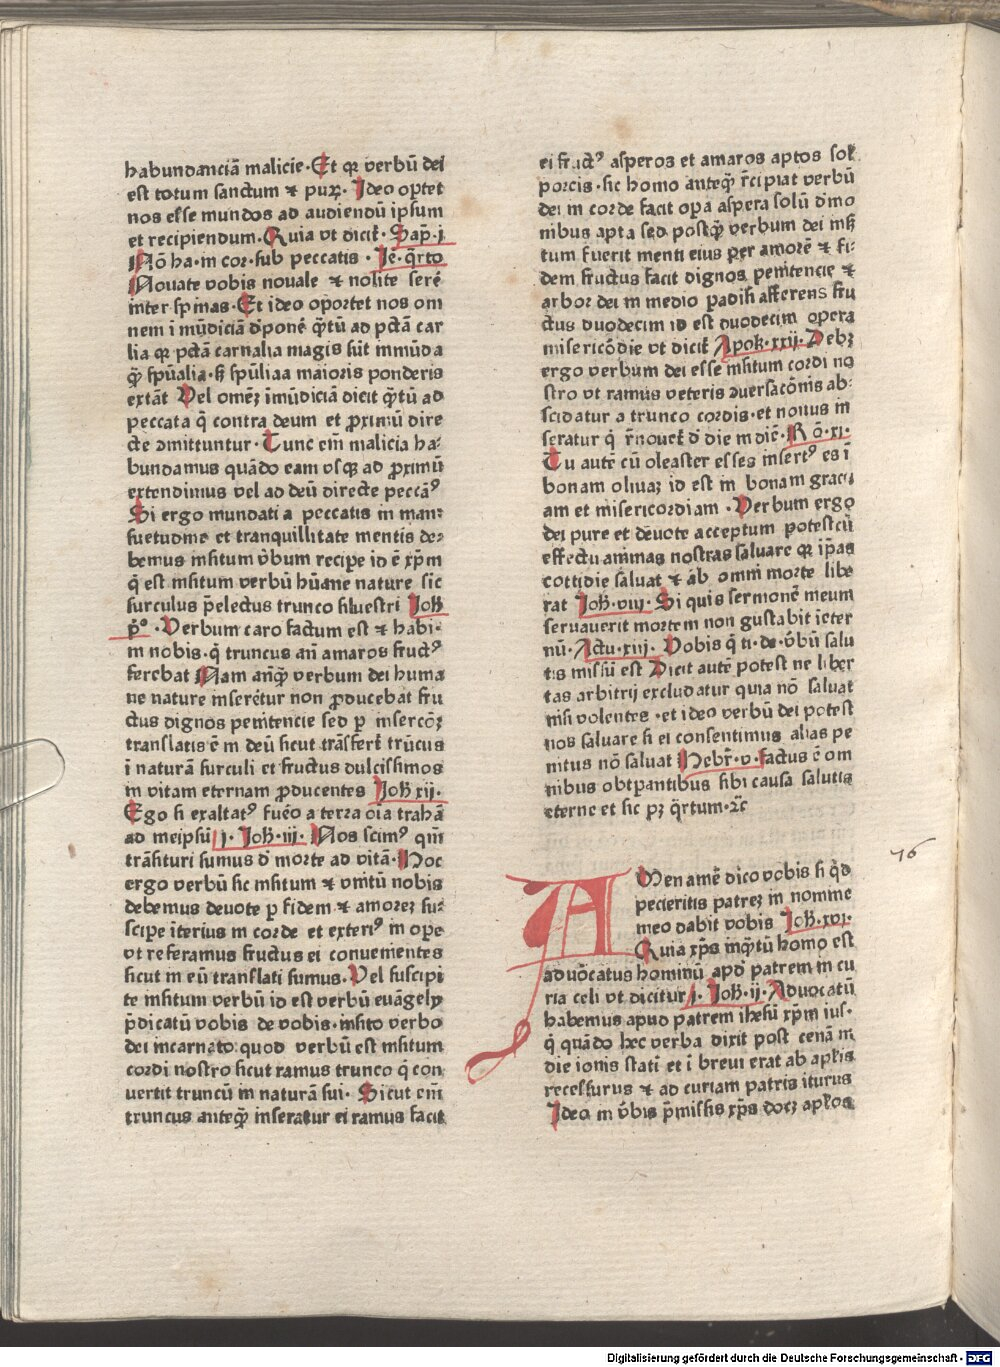 habundanciā malicie· Et qꝛ verbū dei
est totum sanctum ⁊ puꝝ· Ideo optet
nos esse mundos ad audiendū ipsum
et recipiendum· Quia vt dicit᷑· Sap̄·i
Nō ha·in cor·sub peccatis· Ie·q̄rto
Nouate vobis nouale ⁊ nolite serē
inter spinas· Et ideo oportet nos om
nem ī mūdiciā dꝓponē q̄tū ad pctā car
lia qꝛ pctā carnalia magis sūt mmūda
q̄ꝫ spūalia· ß spūliaa maioris ponderis
extāt Vel omēꝫ īmūdiciā dicit q̄tū ad
peccata q̄ contra deum et ꝓximū dire
cte ꝯmittuntur· Tunc em̄ malicia ha-
bundamus quādo eam vsqꝫ ad ꝓximū
extendimus vel ad deū directe peccāꝰ
Si ergo mundati a peccatis in man-
suetudine et tranquillitate mentis de-
bemus insitum v̄bum recipe id ē xp̄m
q̄ est insitum verbū hūane nature sic
surculus p̄electus trunco siluestri Ioh̄
p̄º· Verbum caro factum est ⁊ habi-
in nobis· q̄ truncus an̄ amaros fructꝰ
ferebat Nam anq̄ꝫ verbum dei huma
ne nature inserētur non ꝓducebat fru
ctus dignos penitencie sed ꝑ misercōꝫ
translatis ē in deū sicut trāsfert᷑ trūcus
ī naturā surculi et fructus dulcissimos
in vitam eternam ꝓducentes Ioh̄ xij·
Ego si exaltatꝰ fuēo a terra oīa trahā
ad meipsū i· Ioh̄·iij· Nos scimꝰ qm̄
trāsituri sumus d̄ morte ad vitā· Hoc
ergo verbū sic insitum ⁊ vnitū nobis
debemus deuote ꝑ fidem ⁊ amoreꝫ su-
scipe īterius in corde et exteriꝰ in ope
vt referamus fructus ei conuenientes
sicut in eū translati sumus· Vel suscipi
te insitum verbū id est verbū euāgelij
p̄dicatū vobis de vobis· insito verbo
dei incarnato: quod verbū est insitum
cordi nostro sicut ramus trunco q̄ con
uertit truncū in naturā sui· Sicut em̄
truncus anteq̄ꝫ inseratur ei ramus facit
ei fructꝰ asperos et amaros aptos sol᷑
porcis· sic homo anteq̄ꝫ r̄cipiat verbū
dei in corde facit oꝑa aspera solū dēmo
nibus apta sed postq̄ꝫ verbum dei insi
tum fuerit menti eius per amorē ⁊ fi-
dem fructus facit dignos penitencie ⁊
arbor dei in medio ꝑadisi afferens fru
ctus duodecim id est duodecim opera
misericōdie vt dicit᷑ Apok·xxij· Debꝫ
ergo verbum dei esse insitum cordi no
stro vt ramus veteris ꝯuersacōnis ab-
scidatur a trunco cordis· et nouus in
seratur q̄ r̄nouet᷑ d̄ die in diē· Rō·xi·
Tu autē cū oleaster esses insertꝰ es ī
bonam oliuaꝫ id est in bonam graci
am et misericordiam· Verbum ergo
dei pure et deuote acceptum potest cū
effectu animas nostras saluare qꝛ ip̄as
cottidie saluat ⁊ ab omni morte libe
rat Ioh̄·viij· Si quis sermonē meum
seruauerit mortem non gustabit īeter
nū· Actu·xiij· Vobis q̄ ti·de·v̄bū salu
tis missū est Dicit autē potest ne liber
tas arbitrij excludatur quia nō saluat
nisi volentes· et ideo verbū dei potest
nos saluare si ei consentimus alias pe
nitus nō saluat Hebr̄·v· factus ē om
nibus obtꝑantibus sibi causa salutis
eterne et sic pꝫ q̄rtum· ⁊c̄
76
AMen amē dico vobis si q̄d
pecieritis patreꝫ in nomine
meo dabit vobis Ioh̄·xvi·
Quia xp̄s inq̄tū homo est
aduōcatus hominū apd̄ patrem in cu
ria celi vt dicitur i· Ioh̄·ij· Aduocatū
habemus apud patrem ihesū xp̄m ius·
q̄ quādo hec verba dixit post cenā in
die iouis stati et ī breui erat ab apl̄is
recessurus ⁊ ad curiam patris iturus
Ideo in v̄bis p̄missis xp̄s docꝫ apl̄os
Digitalisierung gefördert durch die Deutsche Forschungsgemeinschaft - DFG